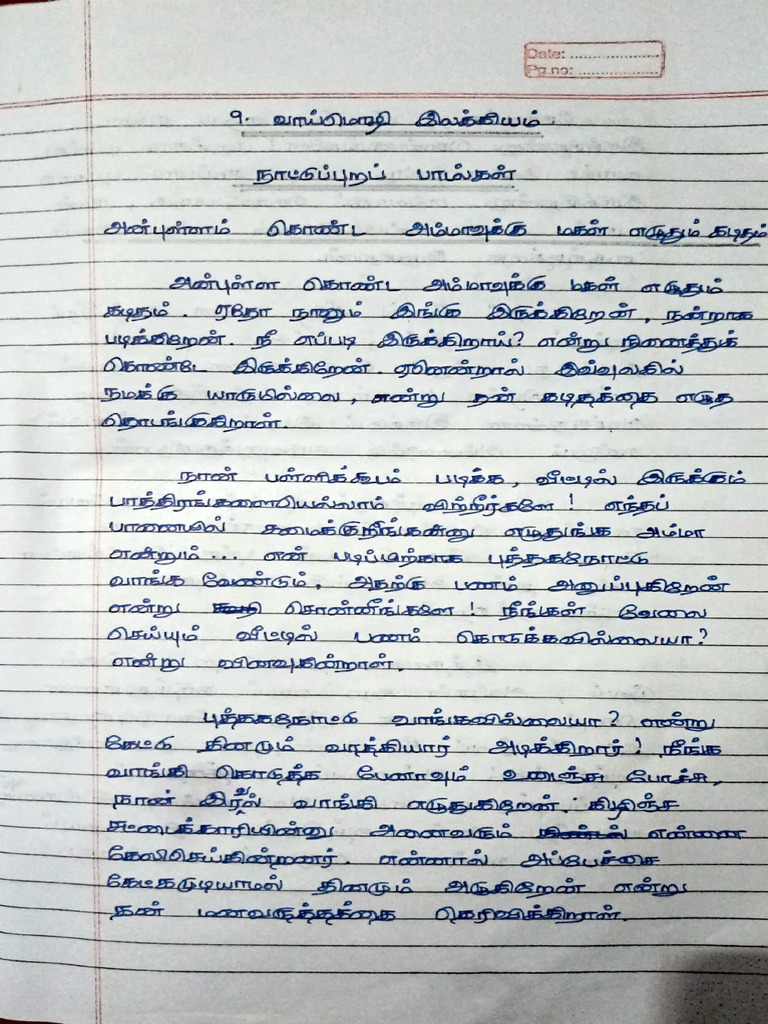 Date: ....................
Pg.no: ....................
9. வாய்மொழி இலக்கியம்
நாட்டுப்புறப் பாடல்கள்
அன்புள்ளம் கொண்ட அம்மாவுக்கு மகள் எழுதும் கடிதம்
அன்புள்ள கொண்ட அம்மாவுக்கு மகள் எழுதும்
கடிதம். ஏதோ நானும் இங்கு இருக்கிறேன், நன்றாக
படிக்கிறேன். நீ எப்படி இருக்கிறாய்? என்று நினைத்துக்
கொண்டே இருக்கிறேன். ஏனென்றால் இவ்வுலகில்
நமக்கு யாருமில்லை, என்று தன் கடிதத்தை எழுத
தொடங்குகிறாள்.
நான் பள்ளிக்கூடம் படிக்க, வீட்டில் இருக்கும்
பாத்திரங்களையெல்லாம் விற்றீர்களே! எந்தப்
பானையில் சமைக்குறீங்கன்னு எழுதுங்க அம்மா
என்றும்... என் படிப்பிற்காக புத்தகநோட்டு
வாங்க வேண்டும், அதற்கு பணம் அனுப்புகிறேன்
என்று சொன்னீங்களே! நீங்கள் வேலை
செய்யும் வீட்டில் பணம் கொடுக்கவில்லையா?
என்று வினவுகின்றாள்.
புத்தகநோட்டு வாங்கவில்லையா? என்று
கேட்டு தினமும் வாத்தியார் அடிக்கிறார்! நீங்க
வாங்கி கொடுத்த பேனாவும் உடைஞ்சு போச்சு,
நான் இரவல் வாங்கி எழுதுகிறேன். கிழிஞ்ச
சட்டைக்காரியின்னு அனைவரும் என்னை
கேலிசெய்கின்றனர். என்னால் அப்பேச்சை
கேட்கமுடியாமல் தினமும் அழுகிறேன் என்று
தன் மனவருத்தத்தை தெரிவிக்கிறாள்.